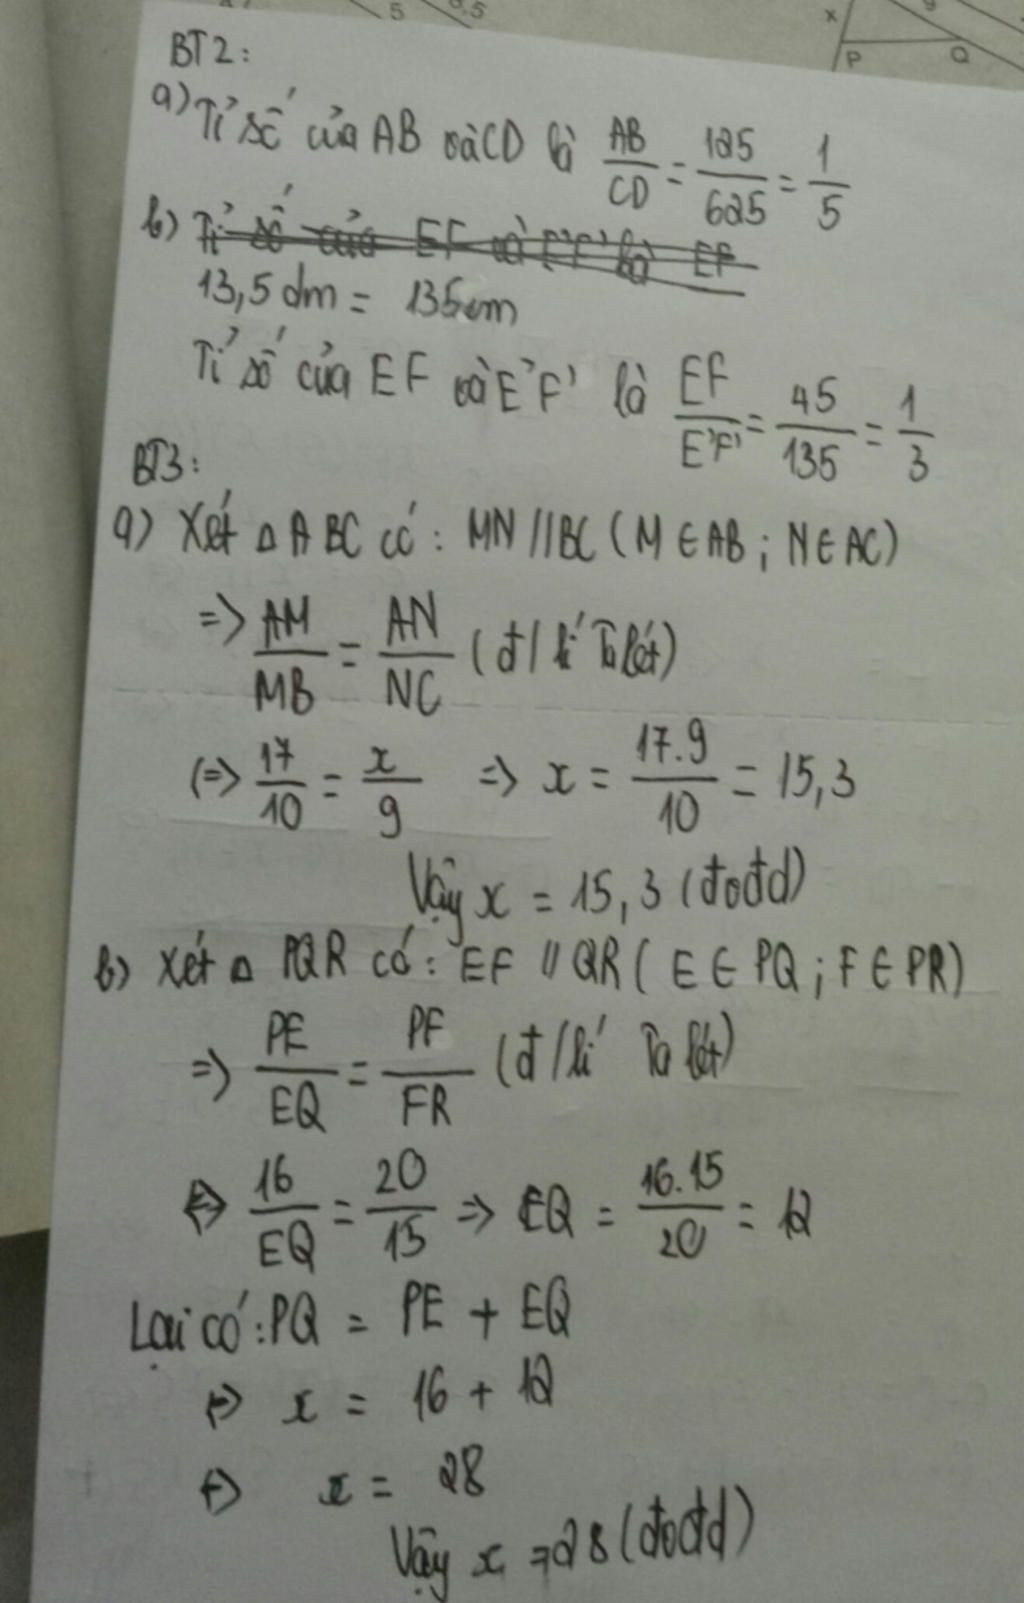 5
8,5
x
9
P
Q
BT2:
a) Tỉ số của AB và CD là AB/CD = 125/625 = 1/5
b) Tỉ số của EF và E'F' là EF
13,5 dm = 135cm
Tỉ số của EF và E'F' là EF/E'F' = 45/135 = 1/3
BT3:
a) Xét △ ABC có: MN // BC (M ∈ AB; N ∈ AC)
=> AM/MB = AN/NC (đ/lí Ta lét)
(=> 17/10 = x/9 => x = 17.9/10 = 15,3
Vậy x = 15,3 (đođd)
b) Xét △ PQR có: EF // QR (E ∈ PQ; F ∈ PR)
=> PE/EQ = PF/FR (đ/lí Ta lét)
<=> 16/EQ = 20/15 => EQ = 16.15/20 = 12
Lại có: PQ = PE + EQ
<=> x = 16 + 12
<=> x = 28
Vậy x = 28 (đođd)